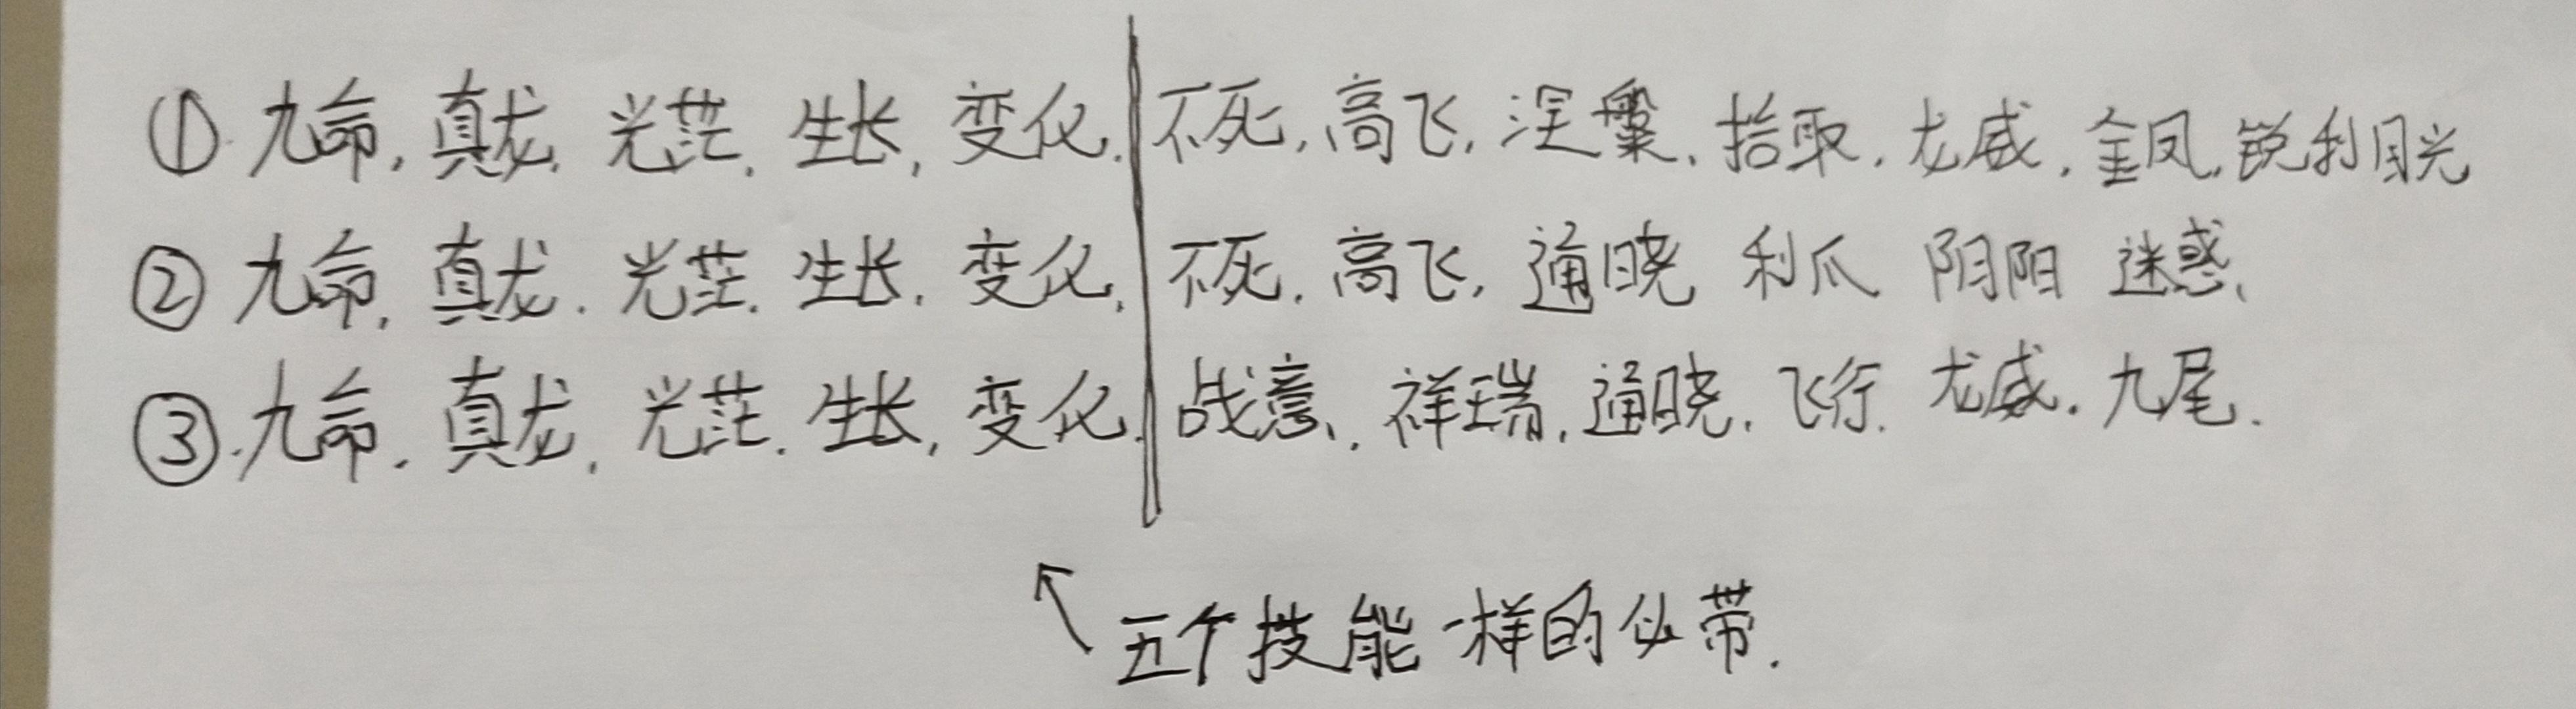 ① 九命，真龙，光茫，生长，变化，不死，高飞，涅槃，拾取，龙威，金凤，锐利目光
② 九命，真龙．光茫．生长，变化，不死．高飞，通晓 利爪 阴阳 迷惑、
③．九命．真龙，光茫．生长，变化．战意，祥瑞，通晓．飞行．龙威．九尾．
↖五个技能一样的必带．